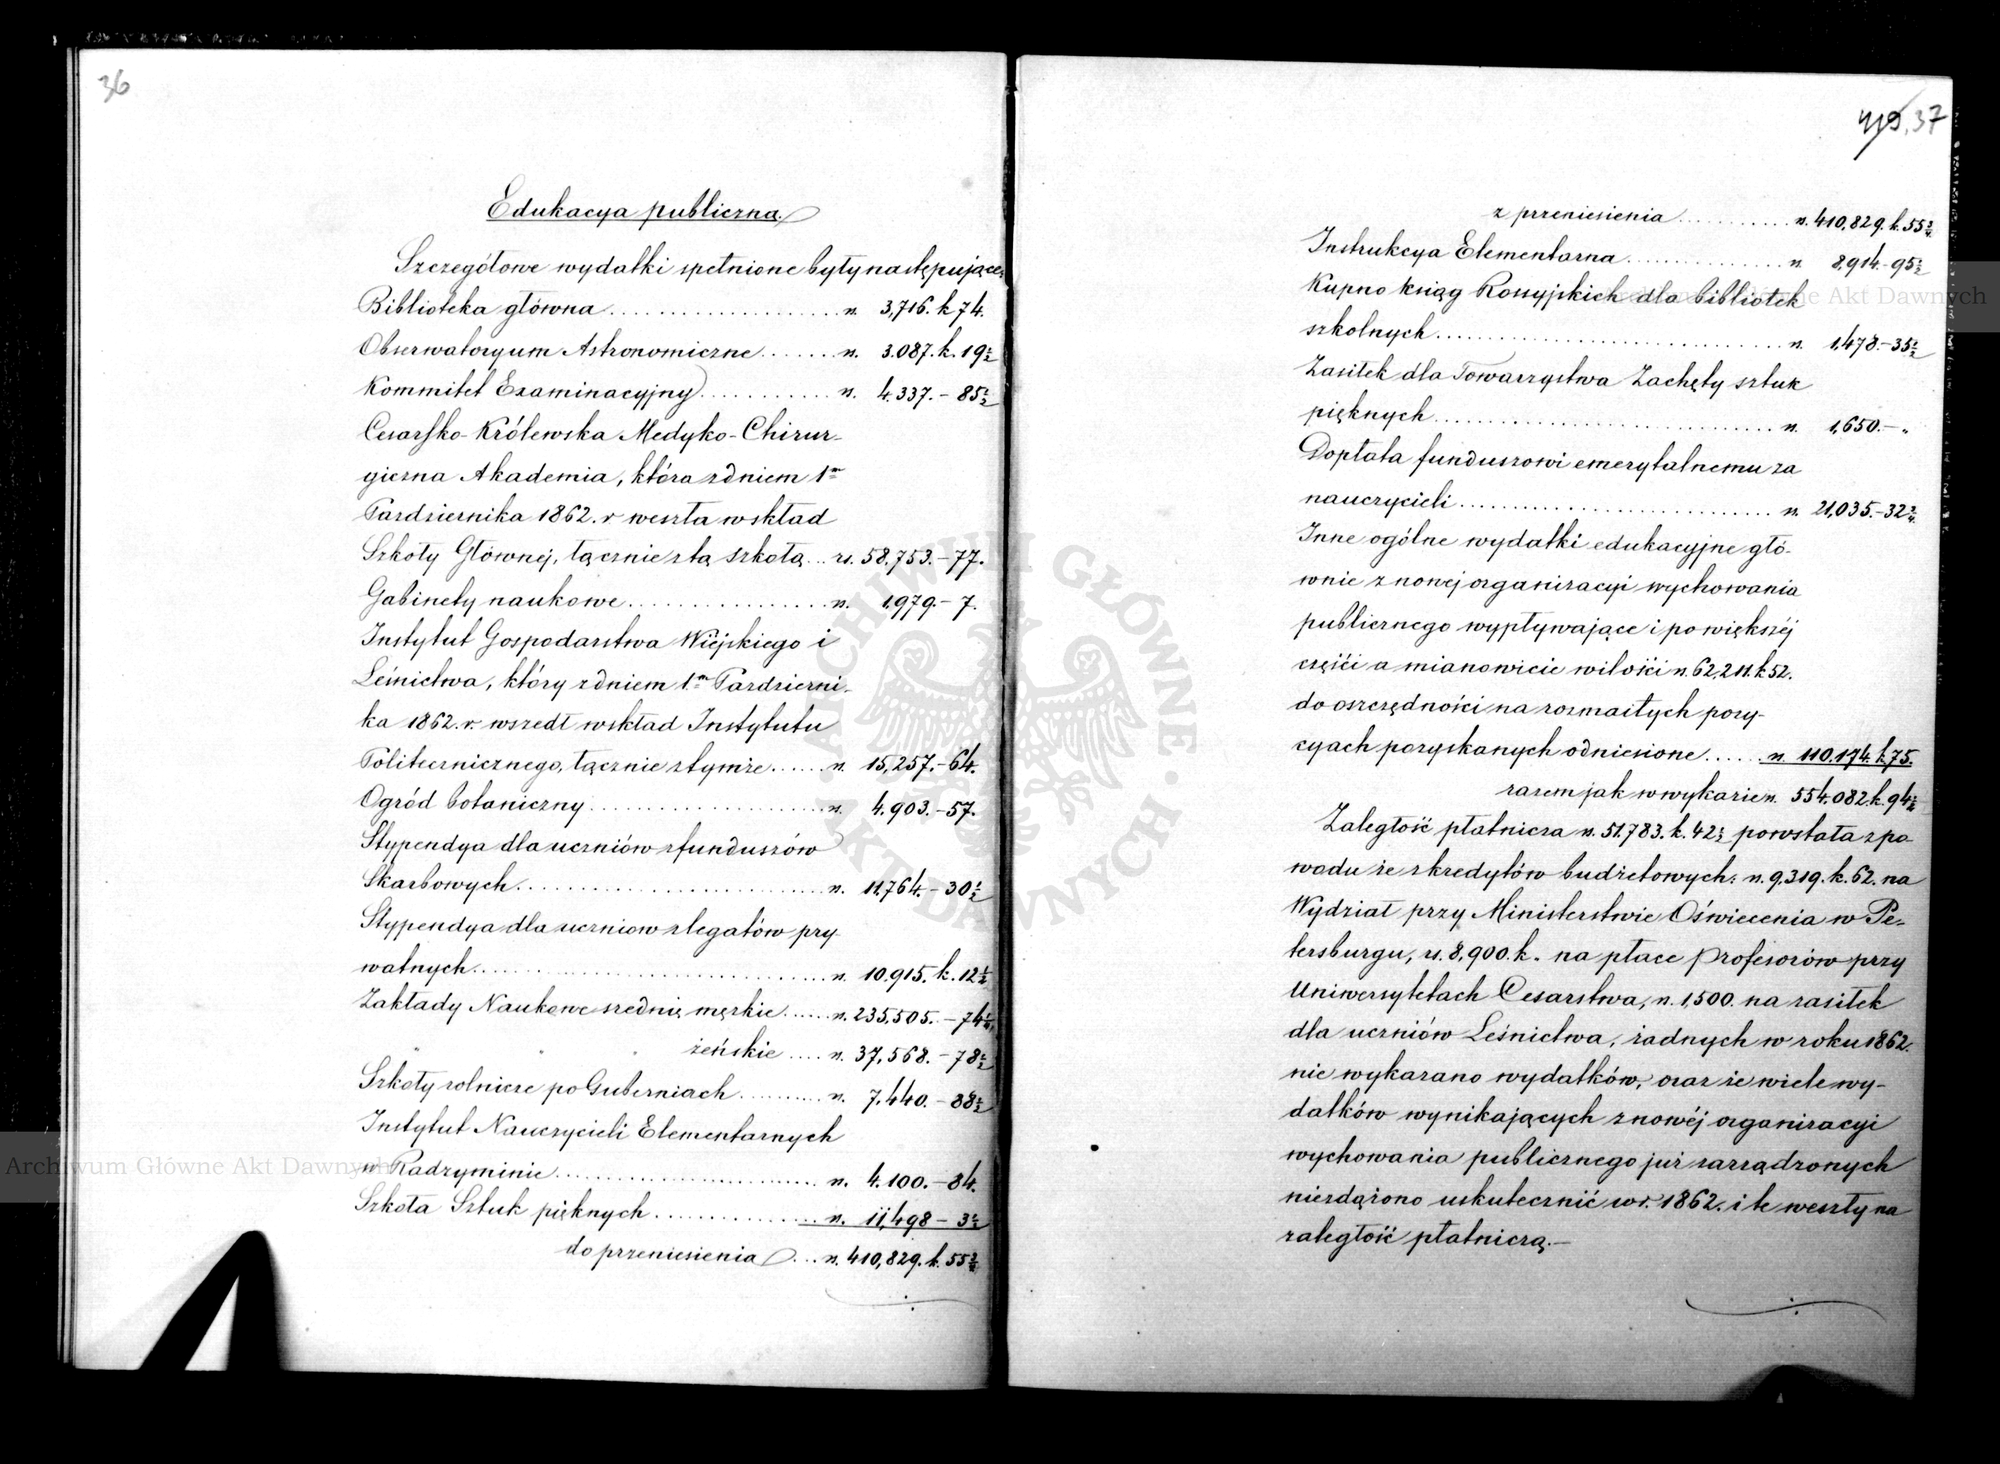 36
Edukacya publiczna.
Szczegółowe wydatki spełnione były następujące:
Biblioteka główna .................... rs. 3,716. k 74.
Obserwatoryum Astronomiczne ....... rs. 3.087. k. 19½
Kommitet Examinacyjny ........... rs. 4.337. – 85½
Cesarsko-Królewska Medyko-Chirur-
giczna Akademia, która z dniem 1m
Października 1862. r weszła w skład
Szkoły Głównej, łącznie z tą szkołą ... rs. 58.753. – 77.
Gabinety naukowe ................ rs. 1,979. – 7.
Instytut Gospodarstwa Wiejskiego i
Leśnictwa, który z dniem 1.m Październi-
ka 1862. r. wszedł w skład Instytutu
Politecznicznego, łącznie z tymże ...... rs. 15,257. – 64.
Ogród botaniczny .................... rs. 4.903. – 57.
Stypendya dla uczniów z funduszów
Skarbowych ......................... rs. 11,764. – 30½
Stypendya dla uczniow z legatów pry-
watnych ............................ rs. 10.915. k. 12½
Zakłady Naukowe srednie męzkie ...... rs. 235,505. – 74¼
" " " żeńskie .... rs. 37,568. – 78½
Szkoły rolnicze po Guberniach .......... rs. 7,440. – 88½
Instytut Nauczycieli Elementarnych
w Radzyminie ........................ rs. 4.100. – 84.
Szkoła Sztuk pięknych ................ rs. 11,498 – 3½
do przeniesienia ... rs. 410,829. k. 55¾
37
z przeniesienia ........... rs. 410,829. k. 55¾
Instrukcya Elementarna ............... rs. 8,914. – 95½
Kupno ksiąg Rossyjskich dla bibliotek
szkolnych ............................ rs. 1,478. – 35½
Zasiłek dla Towarzystwa Zachęty sztuk
pięknych ............................. rs. 1,650. – "
Dopłata funduszowi emerytalnemu za
nauczycieli .......................... rs. 21,035. – 32¾
Inne ogólne wydatki edukacyjne głó-
wnie z nowej organizacyi wychowania
publicznego wypływające i po większéj
części a mianowicie w ilości rs. 62,211. k 52.
do oszczędności na rozmaitych pozy-
cyach pozyskanych odniesione ...... rs. 110.174. k. 75.
razem jak w wykazie rs. 554.082. k. 94½
Zaległość płatnicza rs. 51.783. k. 42½ powstała z po-
wodu że z kredytów budżetowych: rs. 9,319. k. 62. na
Wydział przy Ministerstwie Oświecenia w Pe-
tersburgu, rs. 8,900. k. " na płace Profesorów przy
Uniwersytetach Cesarstwa, rs. 1,500. na zasiłek
dla uczniów Leśnictwa, żadnych w roku 1862.
nie wykazano wydatków, oraz że wiele wy-
datków wynikających z nowéj organizacyi
wychowania publicznego już zarządzonych
niezdążono uskutecznić w r. 1862. i te weszły na
zaległość płatniczą. –
ARCHIWUM GŁÓWNE AKT DAWNYCH
Archiwum Główne Akt Dawnych
Główne Akt Dawnych